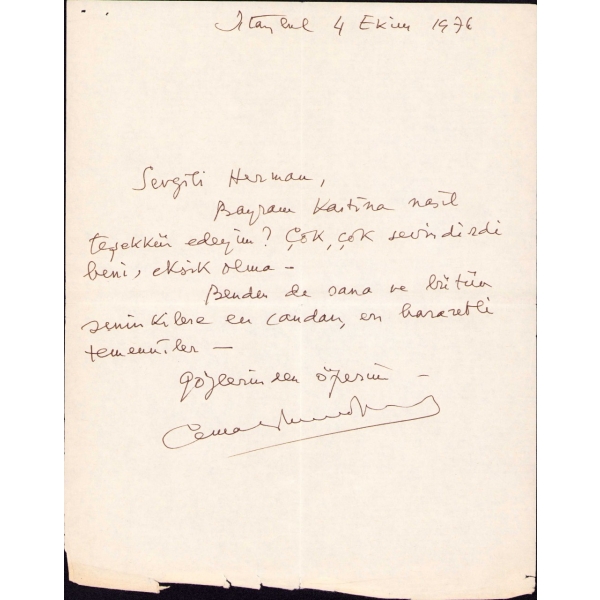 İstanbul 4 Ekim 1976
Sevgili Herman,
Bayram Kartına nasıl
teşekkür edeyim? Çok, çok sevindirdi
beni, eksik olma —
Benden de sana ve bütün
seninkilere en candan, en hararetli
temenniler —
Gözlerinden öperim —
Cemal